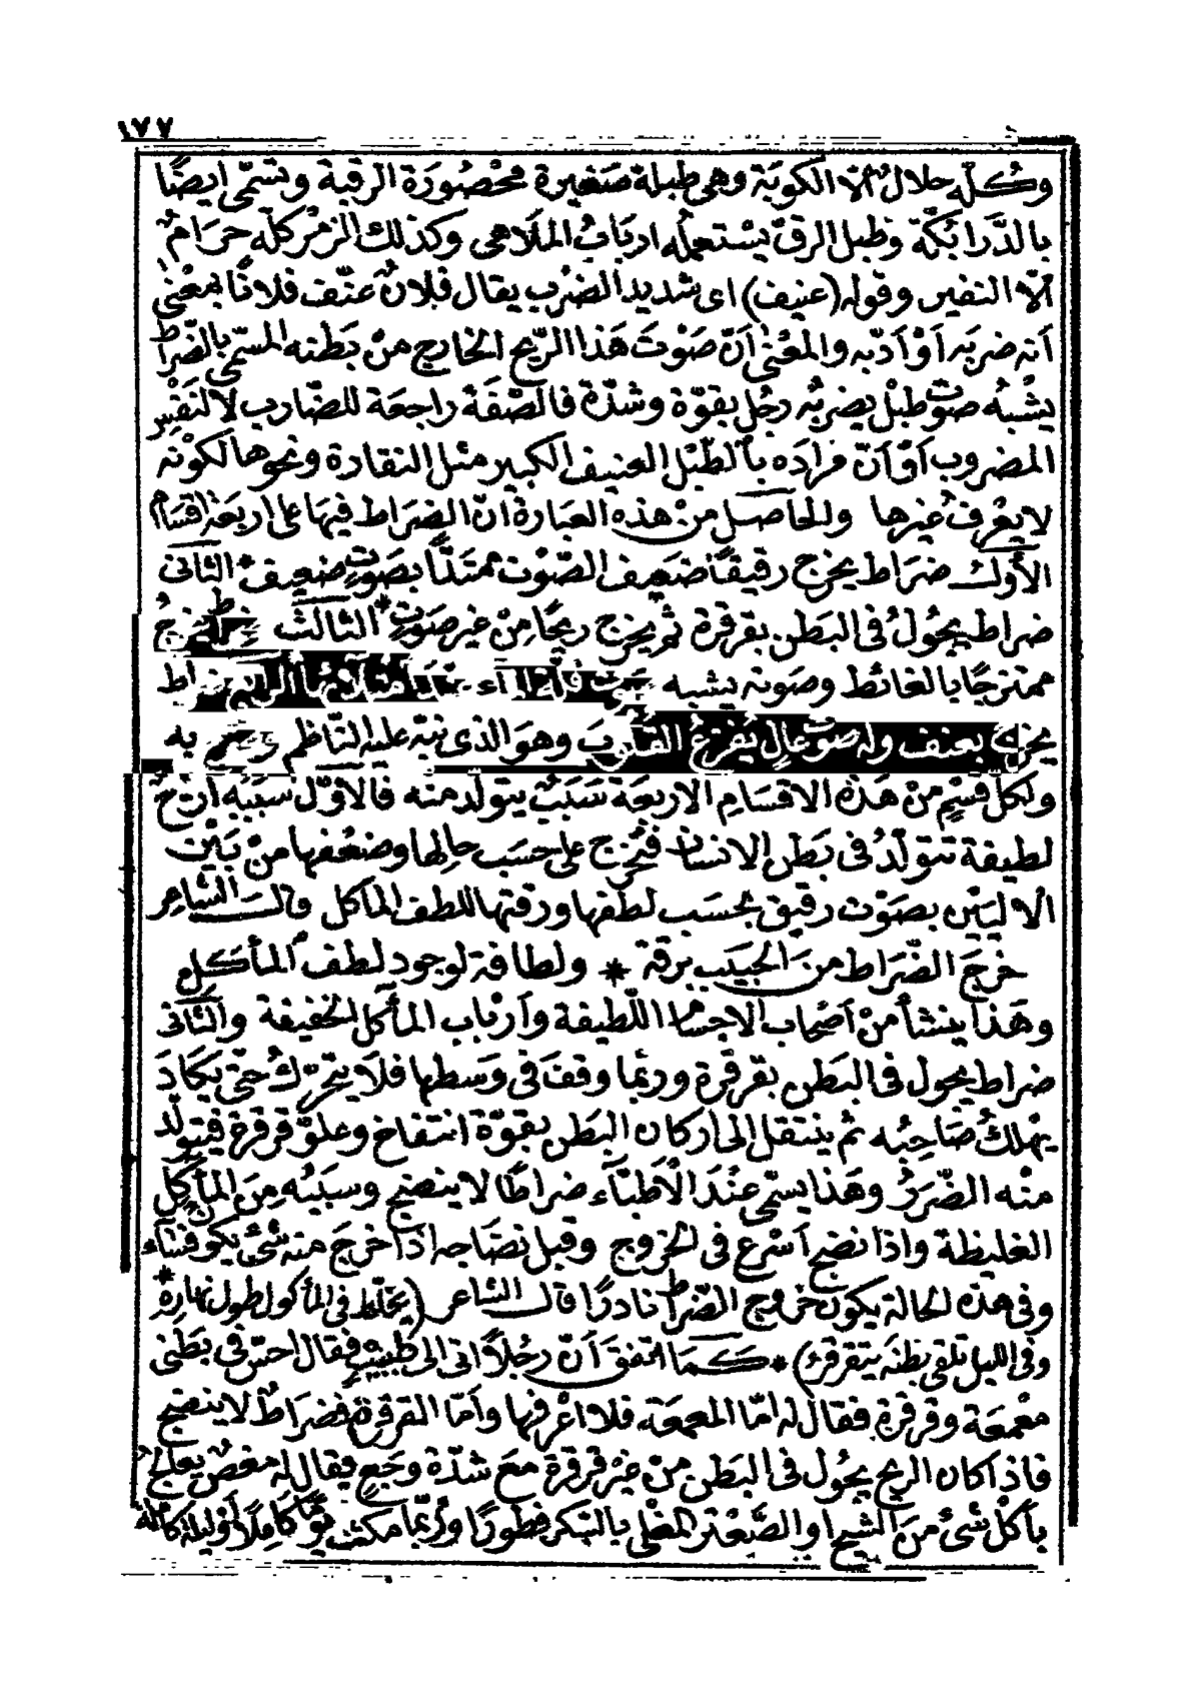 ١٧٧
وكلّه حلالٌ الّا الكوبَة وهى طبلة صَغيرة محْصُورَة الرقبة وتسمّى ايضًا
بالدَّرابُكّة وطبل الرقّ يسْتعمله اربابُ الملَاهى وكذلك الزمْر كلّه حرَامٌ
الّا النفير وقوله (عنيف) اى شديد الضرْب يقال فلانٌ عنّف فلانًا بمعْنى
أنه ضربَه أوْ أدّبه والمعْنى أنّ صَوْتَ هَذا الرّيح الخارج منْ بَطنه المسمّى بالضّراط
يشْبهُ صَوْت طبْل يضربُه رجُل بقوّة وشدّة فالصّفَة راجعَة للضّارب لا لنفْس
المضروب أوْ أنّ مرادَه بالطّبْل العنيف الكبير مثل النقارة ونحوها لكوْنه
لا يعْرف غيرها والحاصل منْ هذه العبَارة انّ الضرَاط فيهَا على اربعَة اقسَام
الأوّل ضرَاط يخرج رقيقًا ضَعيف الصّوْت ممتَدًّا بصَوْتٍ ضعيف * الثانى
ضراط يجُولُ فى البَطن بقرقرة ثمّ يخرج ريحًا مِنْ غير صَوْتٍ * الثالث يخرجُ
ممتزجًا بالغائط وصَوته يشبه
يخرج بعنف وله صوتٌ عالٍ يُفزعُ القلوبَ وهوَ الذى نبّه عليْه النّاظم به
ولكلّ قسْمٍ منْ هَذه الاقسَامِ الاربعَة سَبَبٌ يتولّد منه فالأوّل سَببُه
لطيفة تتولّدُ فى بَطن الانسان فتخرج على حسَب حالِها وضعْفها منْ بَيْن
الاليَتين بصَوْت رقيق بحسَب لطفها ورقتها للطف المأكل قالَ الشاعر
خرجَ الضّرَاط منَ الحبيَب برقة * ولطافة لوجود لطف المأكل
وهَذا ينشأ منْ أصْحاب الاجسَام اللّطيفة وأرْباب المأكل الخفيفة والثّانى
ضراط يجول فى البَطن بقرقرة وربّما وقفَ فى وَسطها فلا يتحرّكُ حتّى يَكَادَ
يهْلكُ صَاحبُه ثم ينتقل الى اركان البَطن بقوّة انتفاخ وعلوّ قرقرة فيتولّد
منْه الضّرَرُ وهَذا يسمّى عنْدَ الأطبّاء ضراطًا لا ينضج وسببُه منَ المآكل
الغليظة واذا نضج أسْرع فى الخروج وقبل نضَاجه اذا خرجَ منه شئ يكون فسَاء
وفى هذه الحالة يكون خروج الضّراط نادرًا قال الشاعر (يخلّط فى المأكول طول نهاره *
وفى الليل تلقى بطنَه يتقرقرُ) * كمَا اتّفقَ أنّ رجُلاً اتى الى طَبيبٍ فقال احسّ فى بَطْنى
معْمعَة وقرقرة فقال له امّا المعمعَة فلا اعْرفها وأمّا القرقرة فضرَاطٌ لا ينضج
فاذا كان الريح يجُول فى البَطن منْ غيْر قرقرة معَ شدّة وجَعٍ فيقال له مغصٌ يعالجُ
بأكل شئ منَ الشّيح او الصَّعتر المغلى بالسّكر فطورًا وربّما مكث يوْمًا كاملًا أوْ ليلة كاملة